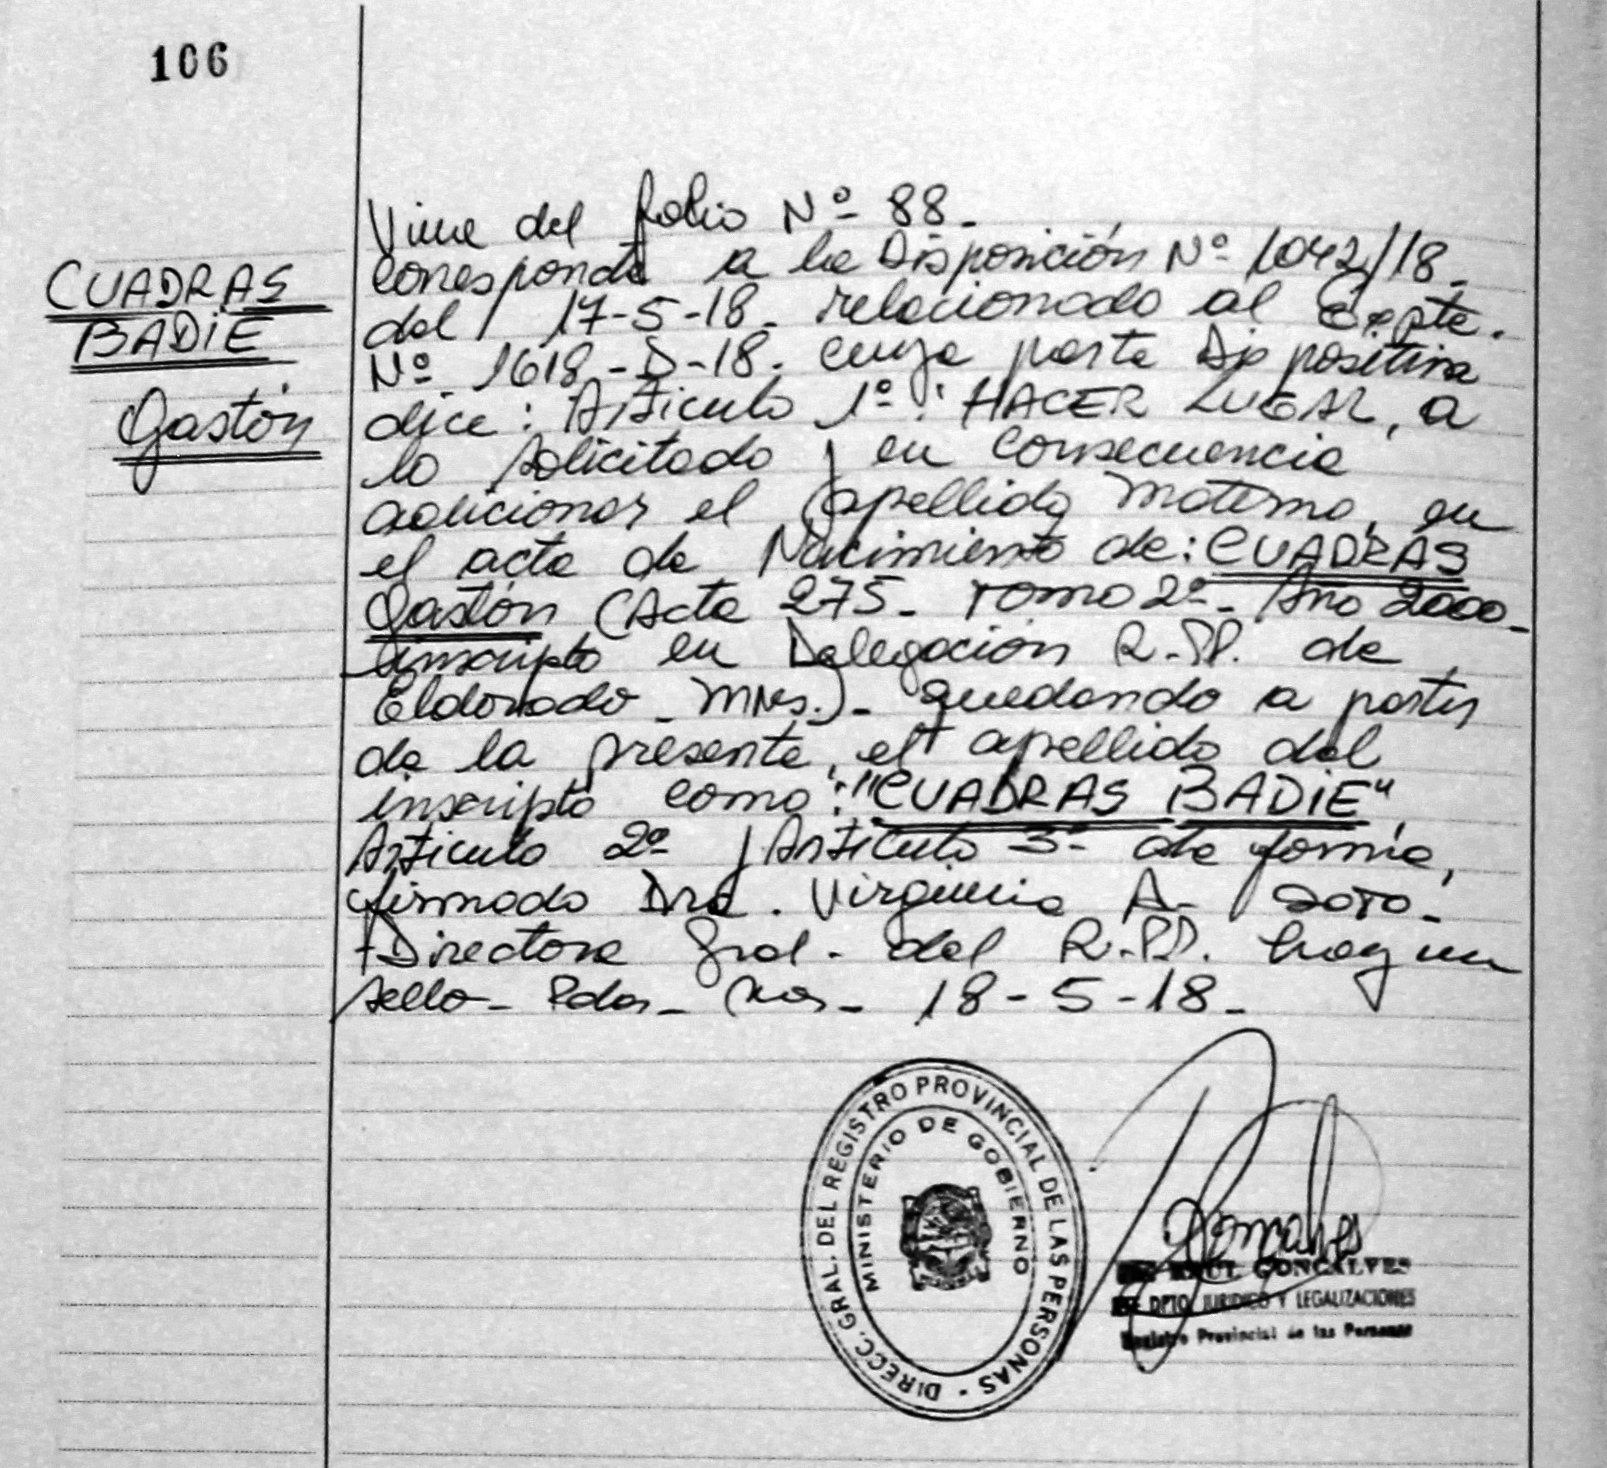 106
CUADRAS
BADIE
Gastón
Viene del folio Nº 88-
Corresponde a la Disposición Nº 1042/18-
del 17-5-18- relacionado al Expte.
Nº 1618-D-18. cuya parte Dispositiva
dice: Articulo 1º: HACER LUGAR, a
lo solicitado y en consecuencia
adicionar el apellido materno, en
el acta de Nacimiento de: CUADRAS
Gastón (Acta 275- Tomo 2º- Año 2000-
inscripto en Delegación R.PP. de
Eldorado - Mnes.)- quedando a partir
de la presente, el apellido del
inscripto como: "CUADRAS BADIE",
Articulo 2º y Articulo 3º de forma,
firmado Dra. Virginia A. SOTO-
Directora Gral. del R.PP. hay un
sello- Pdas- Mnes- 18-5-18-
DIRECC. GRAL. DEL REGISTRO PROVINCIAL DE LAS PERSONAS -
MINISTERIO DE GOBIERNO
Goncalves
RAUL GONCALVES
DPTO. JURIDICO Y LEGALIZACIONES
Registro Provincial de las Personas